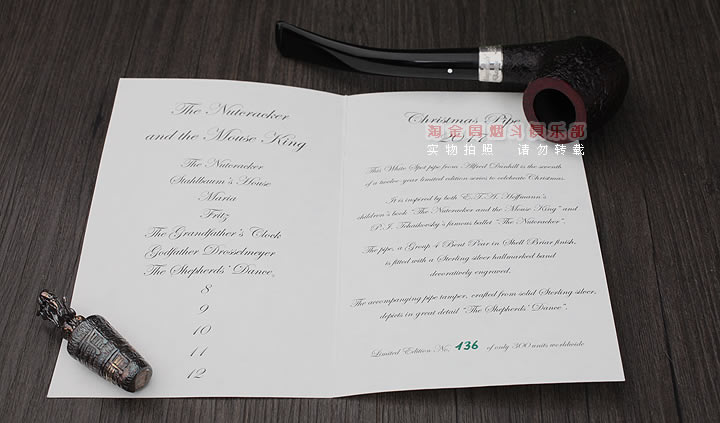 The Nutcracker
and the Mouse King
The Nutcracker
Stahlbaum's House
Maria
Fritz
The Grandfather's Clock
Godfather Drosselmeyer
The Shepherds' Dance
8
9
10
11
12
Christmas Pipe
淘金圈烟斗俱乐部
实物拍照 请勿转载
This White Spot pipe from Alfred Dunhill is the seventh
of a twelve-year limited edition series to celebrate Christmas.
It is inspired by both E.T.A. Hoffmann's
children's book "The Nutcracker and the Mouse King" and
P.I. Tchaikovsky's famous ballet "The Nutcracker".
The pipe, a Group 4 Bent Pear in Shell Briar finish,
is fitted with a Sterling silver hallmarked band
decoratively engraved.
The accompanying pipe tamper, crafted from solid Sterling silver,
depicts in great detail "The Shepherds' Dance".
Limited Edition No. 136 of only 300 units worldwide